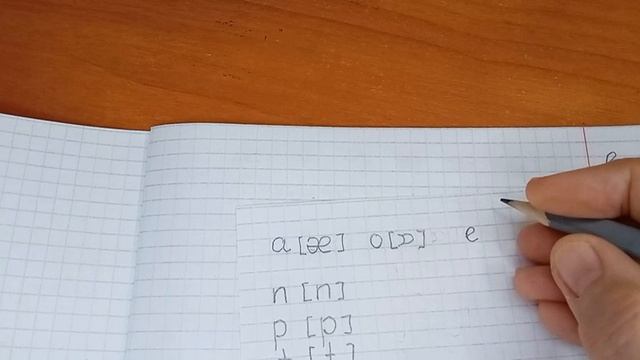 a [æ] o [ɒ] e
n [n]
p [p]
t [t]